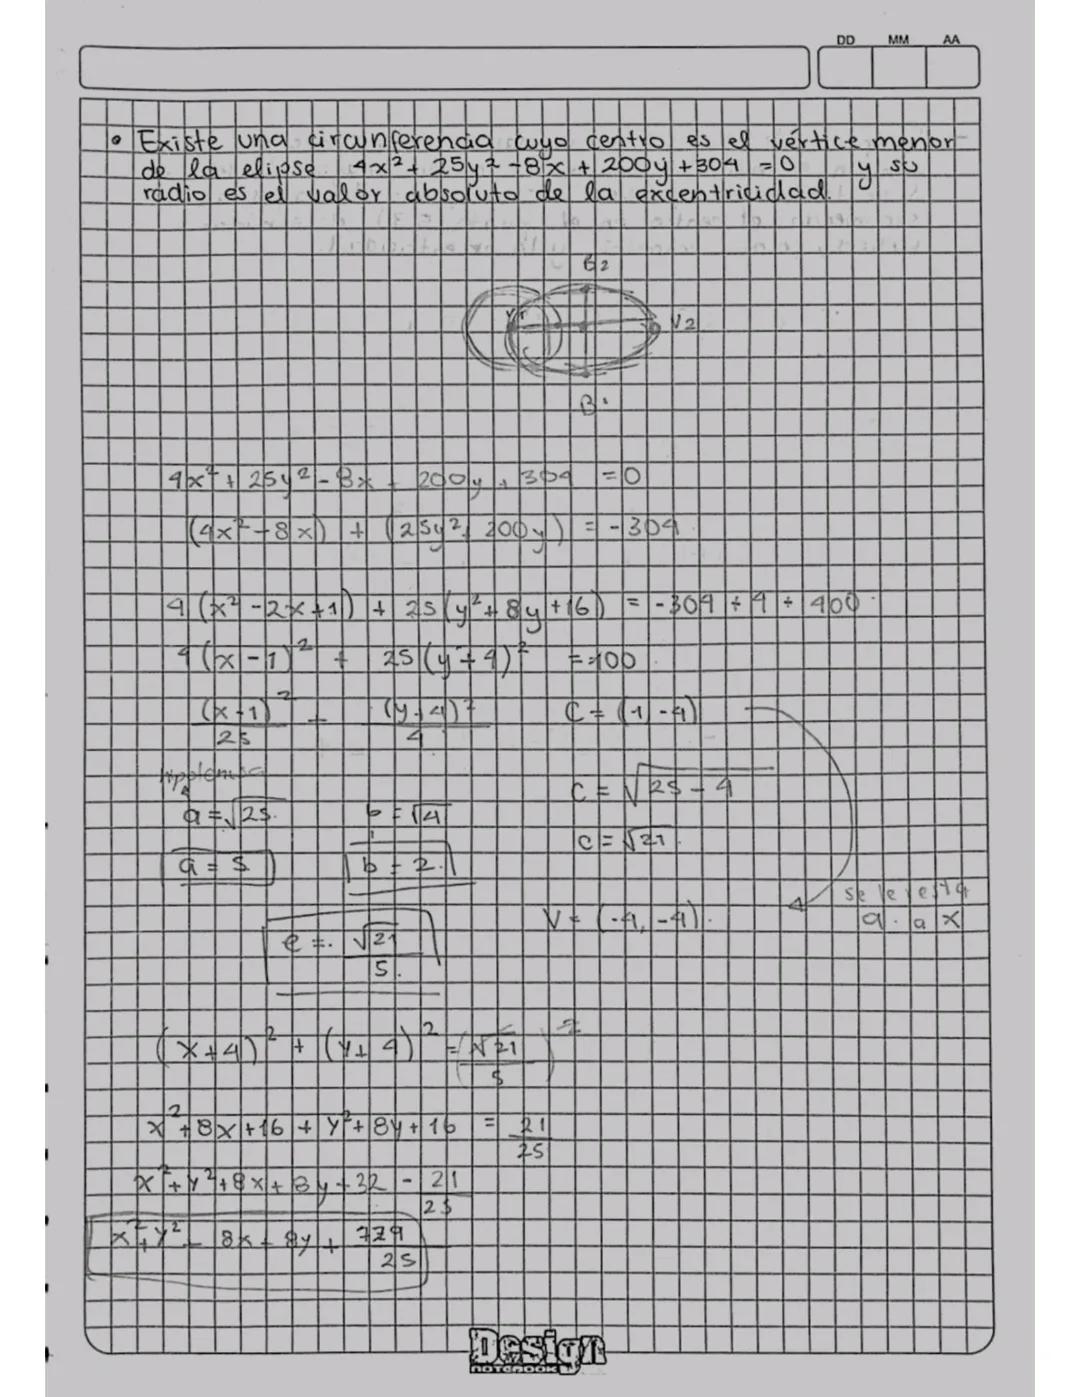 DD MM AA
• Existe una circunferencia cuyo centro es el vértice menor
de la elipse 4x² + 25y² - 8x + 200y + 304 = 0 y su
radio es el valor absoluto de la excentricidad.
B2
V1 V2
B1
4x² + 25y² - 8x + 200y + 304 = 0
(4x² - 8x) + (25y² + 200y) = -304
4(x² - 2x + 1) + 25(y² + 8y + 16) = -304 + 4 + 400
4(x - 1)² + 25(y + 4)² = 100
(x - 1)²/25 + (y + 4)²/4 C = (1, -4)
hipotenusa
c = √25 - 4
a = √25 b = √4
c = √21
a = 5 b = 2
se le resta
V = (-4, -4) a. a x
e = √21/5
(x + 4)² + (y + 4)² = (√21/5)²
x² + 8x + 16 + y² + 8y + 16 = 21/25
x² + y² + 8x + 8y + 32 - 21/25
x² + y² + 8x + 8y + 779/25
Design
NOTEBOOK